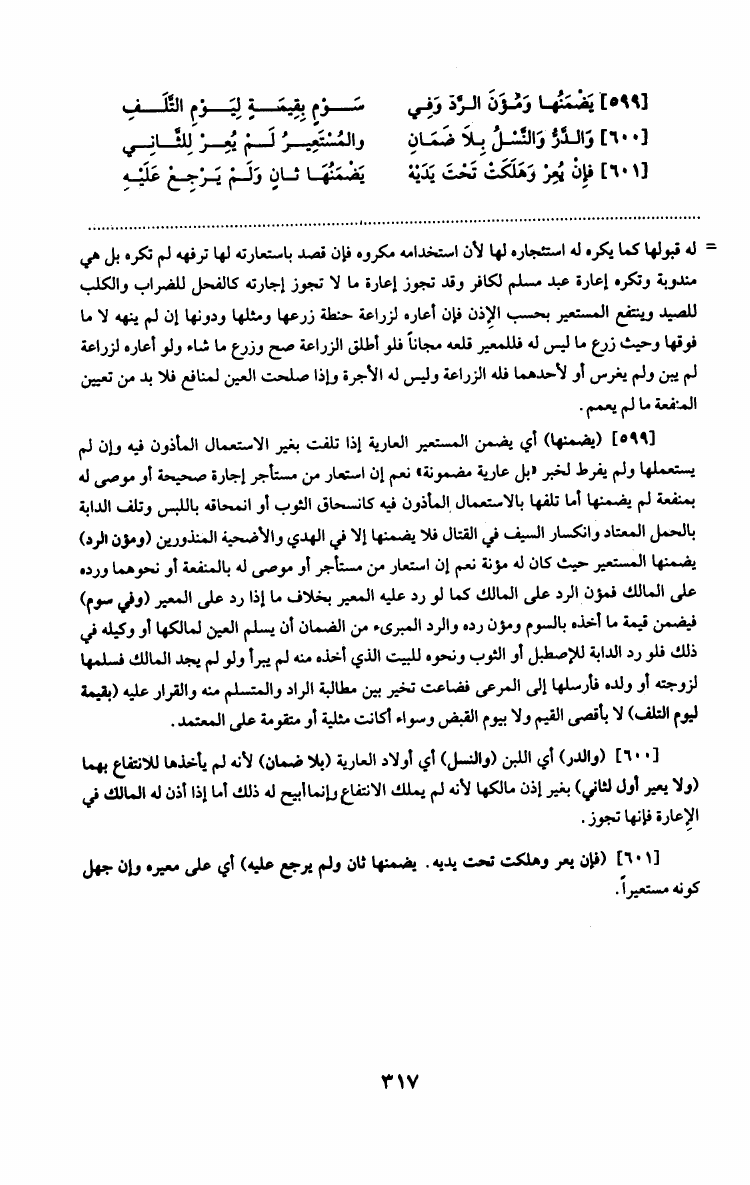 [٥٩٩] يَضْمَنُهَا وَمُؤَنَ الرَّدِّ وَفِي سَوْمٍ بِقِيمَةٍ لِيَوْمِ التَّلَفِ
[٦٠٠] وَالدَّرُّ وَالنَّسْلُ بِلَا ضَمَانِ والمُسْتَعِيرُ لَمْ يُعِرْ لِلثَّانِي
[٦٠١] فإِنْ يُعِرْ وَهَلَكَتْ تَحْتَ يَدَيْهْ يَضْمَنُهَا ثانٍ وَلَمْ يَرْجِعْ عَلَيْهِ
= له قبولها كما يكره له استئجاره لها لأن استخدامه مكروه فإن قصد باستعارته لها ترفهه لم تكره بل هي
مندوبة وتكره إعارة عبد مسلم لكافر وقد تجوز إعارة ما لا تجوز إجارته كالفحل للضراب والكلب
للصيد وينتفع المستعير بحسب الإذن فإن أعاره لزراعة حنطة زرعها ومثلها ودونها إن لم ينهه لا ما
فوقها وحيث زرع ما ليس له فللمعير قلعه مجاناً فلو أطلق الزراعة صح وزرع ما شاء ولو أعاره لزراعة
لم يبن ولم يغرس أو لأحدهما فله الزراعة وليس له الأجرة وإذا صلحت العين لمنافع فلا بد من تعيين
المنفعة ما لم يعمم.
[٥٩٩] (يضمنها) أي يضمن المستعير العارية إذا تلفت بغير الاستعمال المأذون فيه وإن لم
يستعملها ولم يفرط لخبر «بل عارية مضمونة» نعم إن استعار من مستأجر إجارة صحيحة أو موصى له
بمنفعة لم يضمنها أما تلفها بالاستعمال المأذون فيه كانسحاق الثوب أو انمحاقه باللبس وتلف الدابة
بالحمل المعتاد وانكسار السيف في القتال فلا يضمنها إلا في الهدي والأضحية المنذورين (ومؤن الرد)
يضمنها المستعير حيث كان له مؤنة نعم إن استعار من مستأجر أو موصى له بالمنفعة أو نحوهما ورده
على المالك فمؤن الرد على المالك كما لو رد عليه المعير بخلاف ما إذا رد على المعير (وفي سوم)
فيضمن قيمة ما أخذه بالسوم ومؤن رده والرد المبرىء من الضمان أن يسلم العين لمالكها أو وكيله في
ذلك فلو رد الدابة للإصطبل أو الثوب ونحوه للبيت الذي أخذه منه لم يبرأ ولو لم يجد المالك فسلمها
لزوجته أو ولده فأرسلها إلى المرعى فضاعت تخير بين مطالبة الراد والمتسلم منه والقرار عليه (بقيمة
ليوم التلف) لا بأقصى القيم ولا بيوم القبض وسواء أكانت مثلية أو متقومة على المعتمد.
[٦٠٠] (والدر) أي اللبن (والنسل) أي أولاد العارية (بلا ضمان) لأنه لم يأخذها للانتفاع بهما
(ولا يعير أول لثاني) بغير إذن مالكها لأنه لم يملك الانتفاع وإنما أبيح له ذلك أما إذا أذن له المالك في
الإعارة فإنها تجوز.
[٦٠١] (فإن يعر وهلكت تحت يديه. يضمنها ثان ولم يرجع عليه) أي على معيره وإن جهل
كونه مستعيراً.
٣١٧